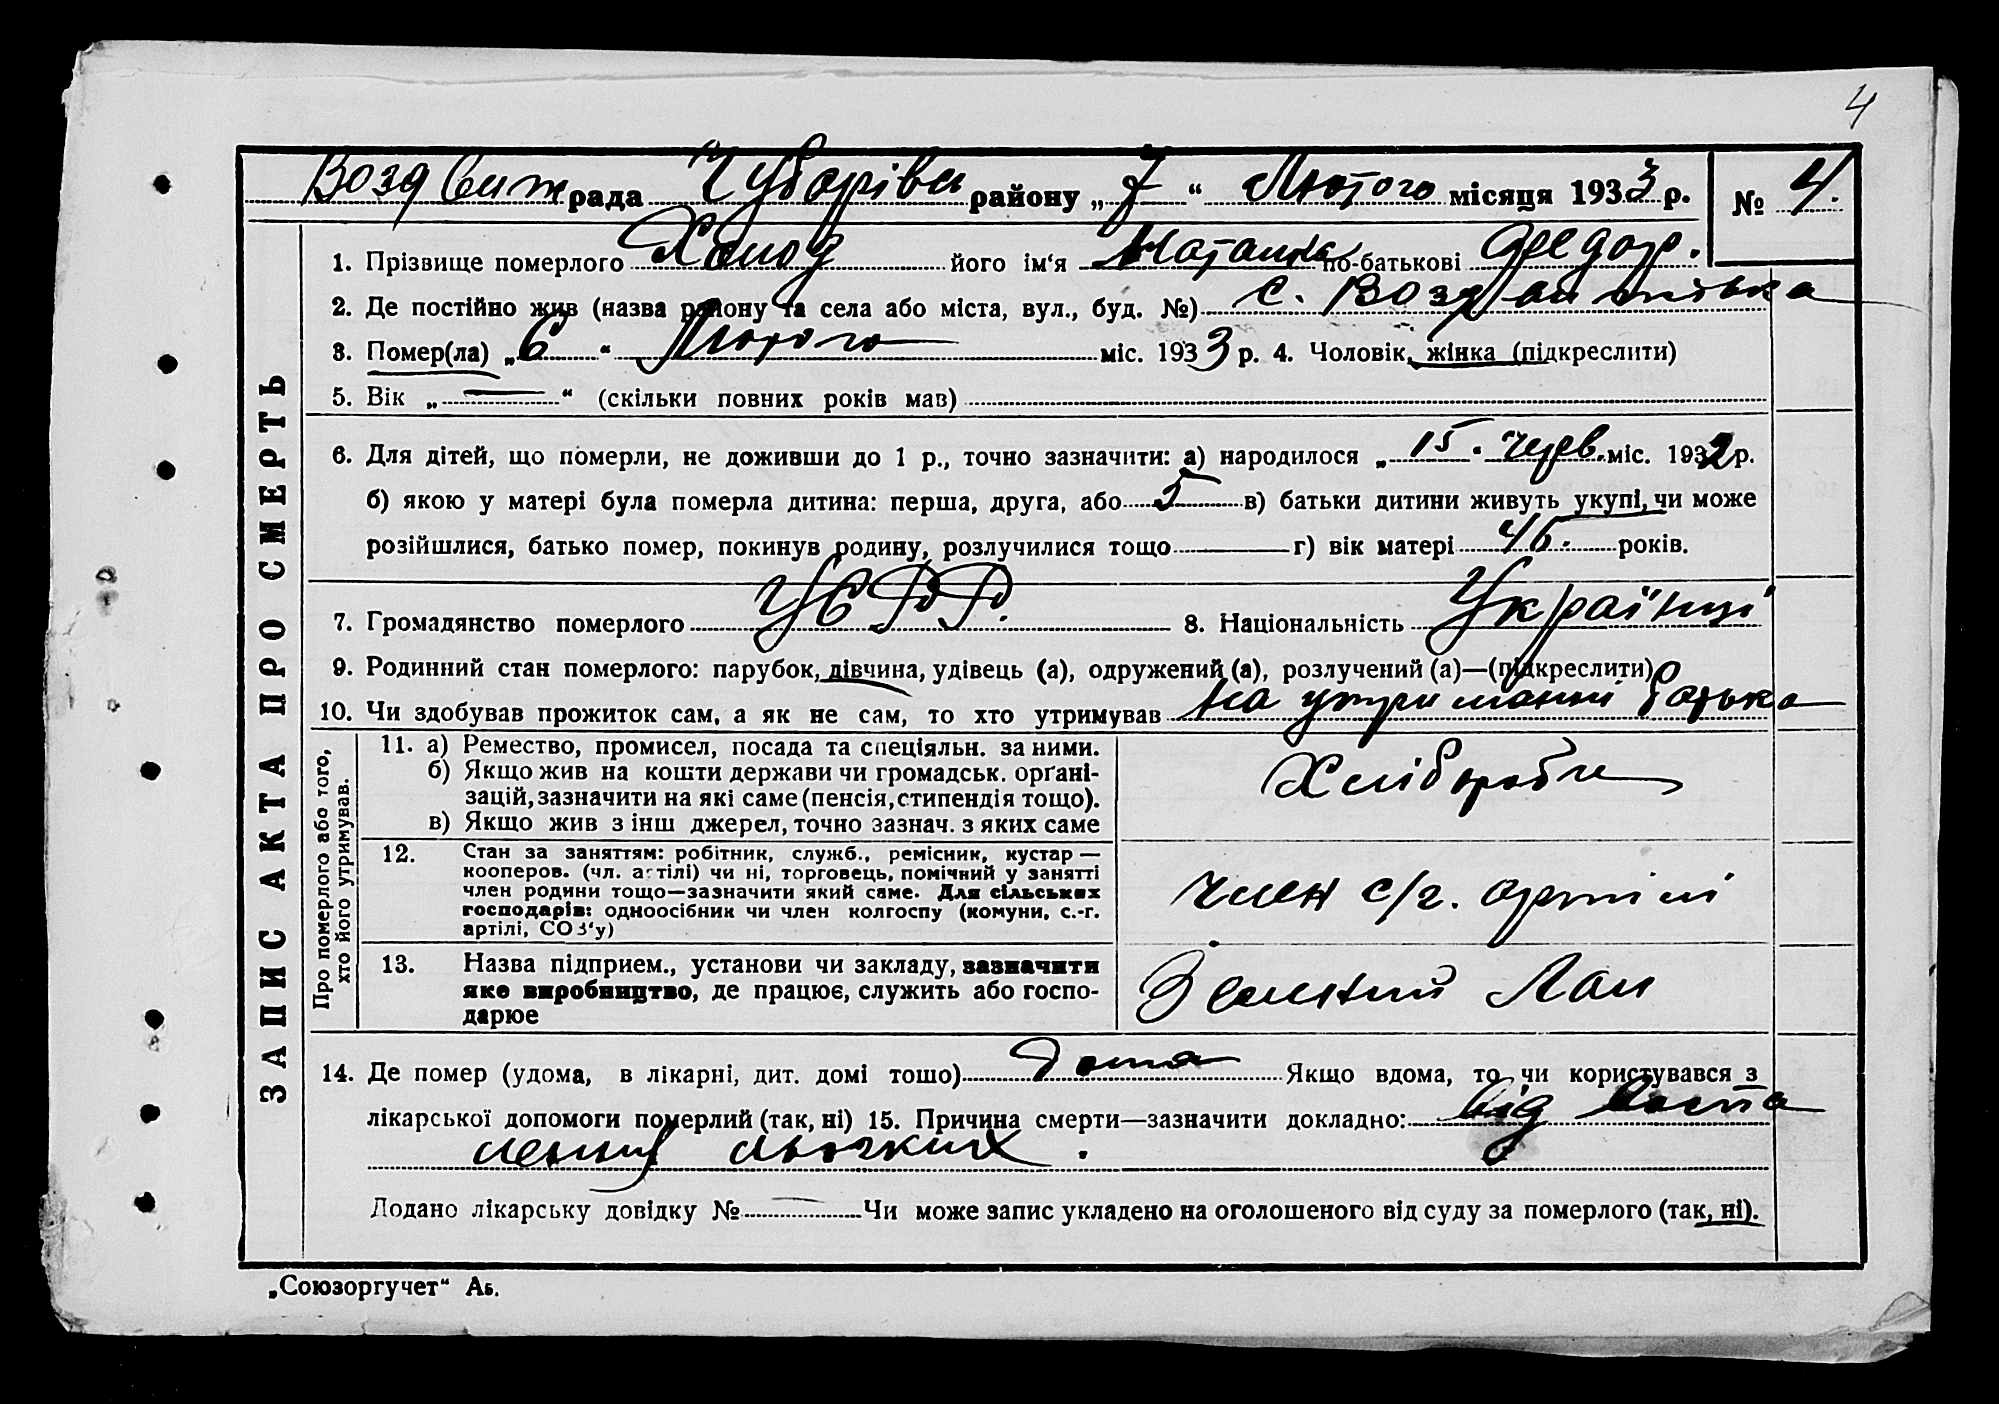 4
Воздвиж рада Чубарівськ району „7“ Лютого місяця 1933 р. № 4.
ЗАПИС АКТА ПРО СМЕРТЬ
1. Прізвище померлого Холод його ім‘я Наталка по-батькові Федор.
2. Де постійно жив (назва району та села або міста, вул., буд. №) с. Воздвижівка
3. Помер(ла) „6“ Лютого міс. 1933 р. 4. Чоловік, жінка (підкреслити)
5. Вік „—“ (скільки повних років мав)
6. Для дітей, що померли, не доживши до 1 р., точно зазначити: а) народилося „15“ черв. міс. 1932 р.
б) якою у матері була померла дитина: перша, друга, або 5 в) батьки дитини живуть укупі, чи може
розійшлися, батько помер, покинув родину, розлучилися тощо — г) вік матері 46. років.
7. Громадянство померлого УСРР. 8. Національність Українці
9. Родинний стан померлого: парубок, дівчина, удівець (а), одружений (а), розлучений (а)—(підкреслити)
10. Чи здобував прожиток сам, а як не сам, то хто утримував на утриманні батька
Про померлого або того,
хто його утримував.
11. а) Ремество, промисел, посада та спеціяльн. за ними.
б) Якщо жив на кошти держави чи громадськ. орґані-
зацій, зазначити на які саме (пенсія, стипендія тощо).
в) Якщо жив з інш джерел, точно зазнач. з яких саме
Хлібороб
12. Стан за заняттям: робітник, служб., ремісник, кустар —
кооперов. (чл. артілі) чи ні, торговець, помічний у занятті
член родини тощо—зазначити який саме. Для сільських
господарів: одноосібник чи член колгоспу (комуни, с.-г.
артілі, СОЗ‘у)
член с/г. артілі
13. Назва підприєм., установи чи закладу, зазначити
яке виробництво, де працює, служить або госпо-
дарює
Зелений Лан
14. Де помер (удома, в лікарні, дит. домі тошо) дома Якщо вдома, то чи користувався з
лікарської допомоги померлий (так, ні) 15. Причина смерти—зазначити докладно: від воспа
лення льогких.
Додано лікарську довідку № — Чи може запис укладено на оголошеного від суду за померлого (так, ні).
„Союзоргучет“ Аь.